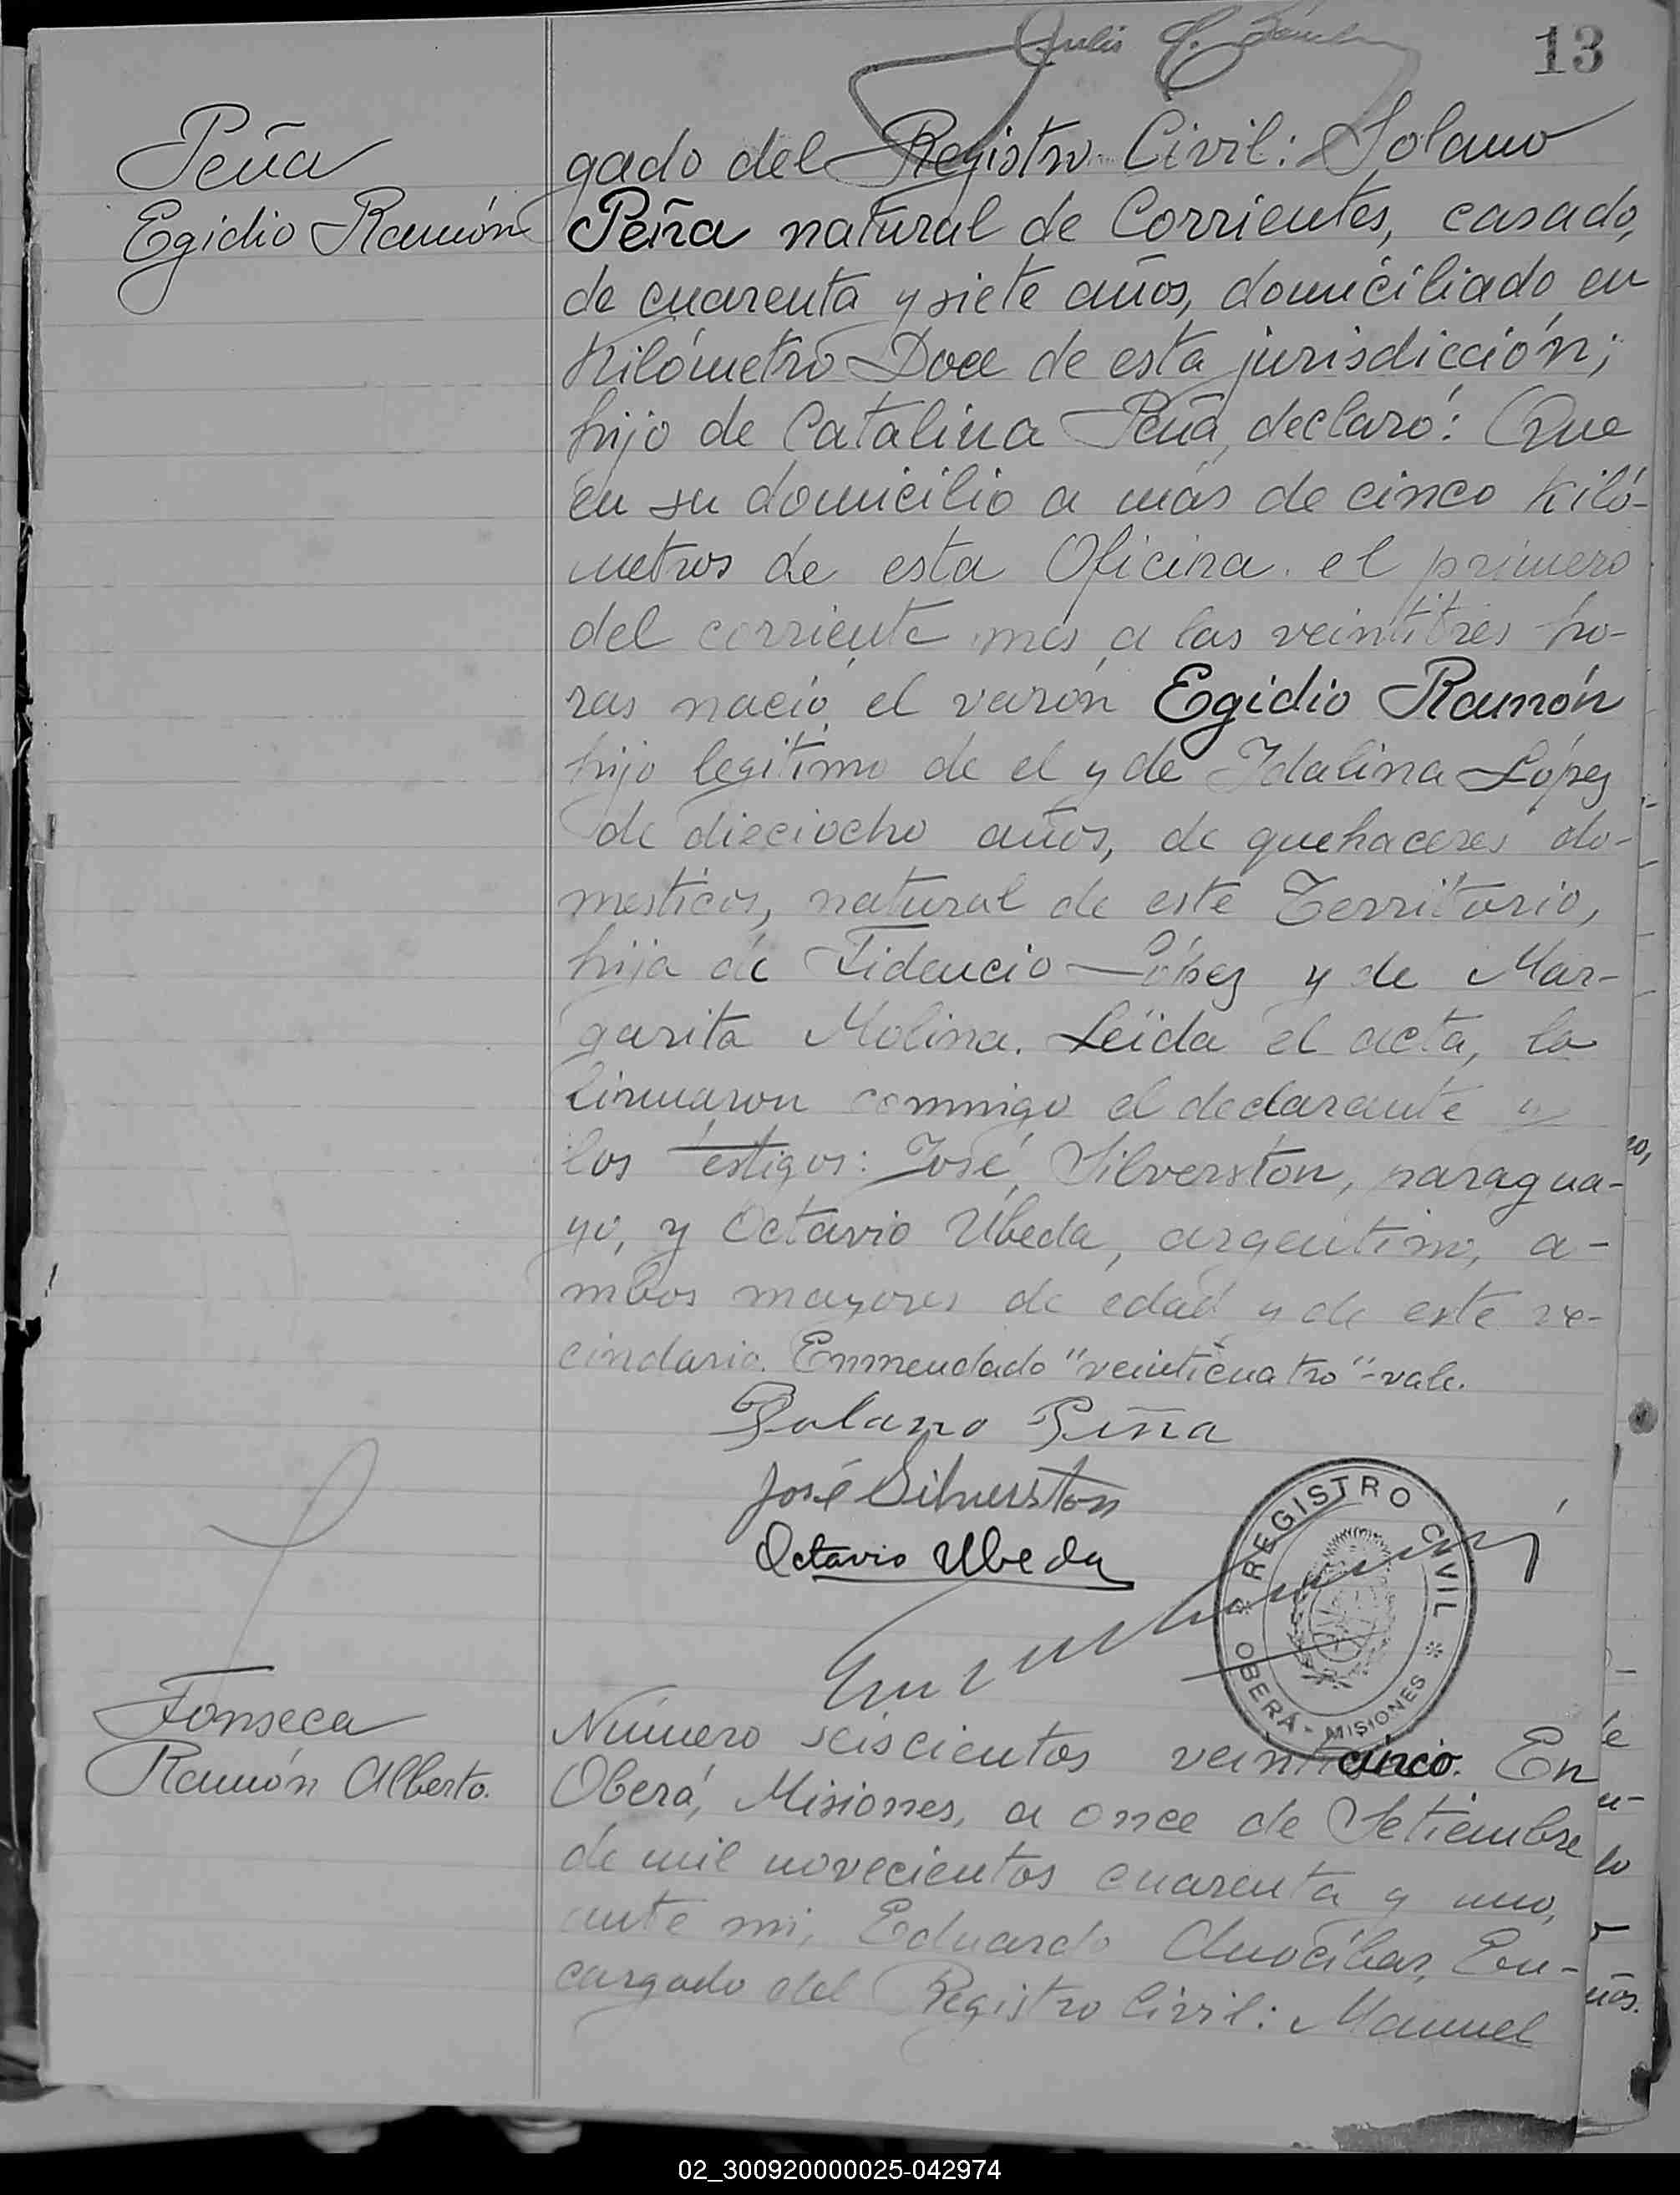 13
Peña
Egidio Ramón
gado del Registro Civil: Solano
Peña natural de Corrientes, casado,
de cuarenta y siete años, domiciliado en
Kilómetro Doce de esta jurisdicción;
hijo de Catalina Peña, declaró: Que
en su domicilio a más de cinco kiló-
metros de esta Oficina el primero
del corriente mes a las veintitres ho-
ras nació el varón Egidio Ramón
hijo legítimo de el y de Idalina López
de dieciocho años, de quehaceres do-
mesticos, natural de este Territorio,
hija de Fidencio López y de Mar-
garita Molina. Leída el acta, la
firmaron conmigo el declarante y
los testigos: José Silverston, paragua-
yo, y Octavio Ubeda, argentino, a-
mbos mayores de edad y de este ve-
cindario. Enmendado "veinticuatro"-vale.
Solano Peña
José Silverston
Octavio Ubeda
REGISTRO CIVIL
OBERÁ - MISIONES
Fonseca
Ramón Alberto.
Número seiscientos veinticinco. En
Oberá, Misiones, a once de Setiembre
de mil novecientos cuarenta y uno,
ante mi, Eduardo En-
cargado del Registro Civil: Manuel
02_300920000025-042974